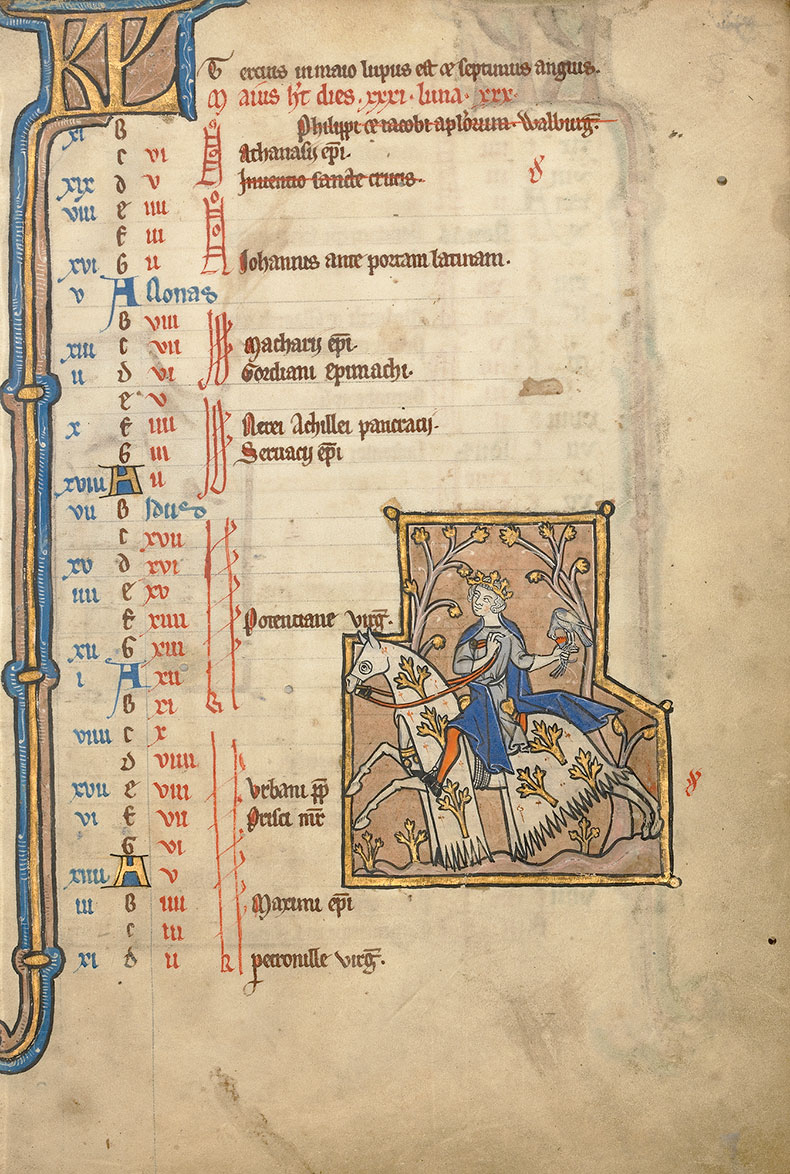 KL Tercius in maio lupus est & septimus anguis.
Maius ħt dies. xxxi. luna. xxx.
xi B Philippi & iacobi aplorum. Walburg̃.
c vi N Athanasij ep̃i.
xix d v Inuentio sancte crucis.
viii e iiii
f iii
xvi G ii Iohannis ante portam latinam.
v A Nonas
B viii
xiii c vii Macharij ep̃i.
ii d vi Gordiani epimachi.
e v
x f iiii Nerei Achillei pancracij.
G iii Seruacij ep̃i
xviii A ii
vii B Idus
c xvii
xv d xvi
iiii e xv
f xiiii Potenciane virg̃.
xii G xiii
i A xii
B xi
viiii c x
d viiii
xvii e viii Vrbani pp̃
vi f vii Prisci mr̃
G vi
xiiii A v
iii B iiii Maximi ep̃i
c iii
xi d ii petronille virg̃.